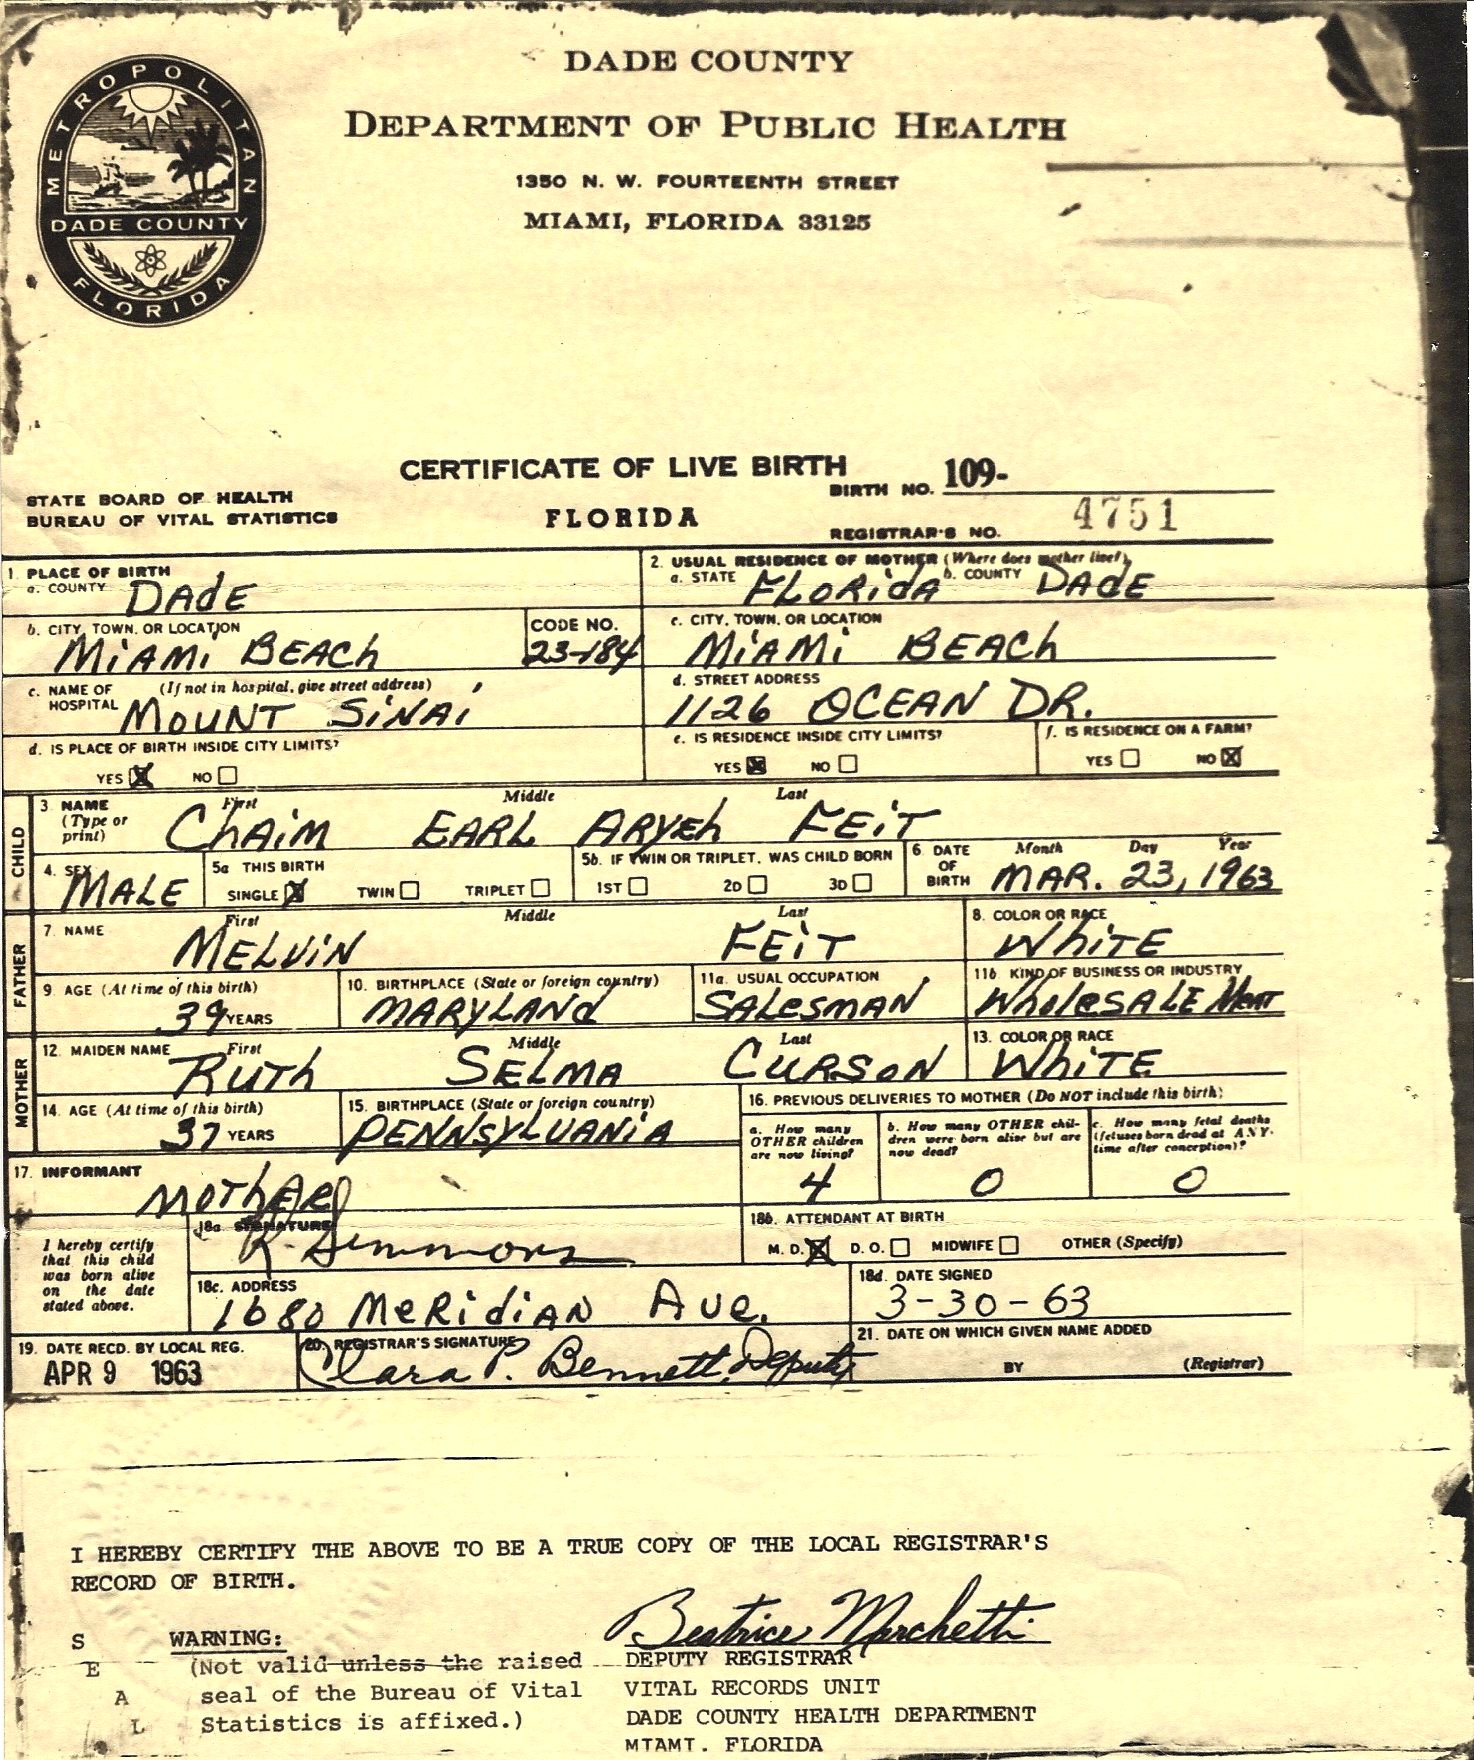 METROPOLITAN
DADE COUNTY
FLORIDA
DADE COUNTY
DEPARTMENT OF PUBLIC HEALTH
1350 N. W. FOURTEENTH STREET
MIAMI, FLORIDA 33125
CERTIFICATE OF LIVE BIRTH
BIRTH NO. 109-
STATE BOARD OF HEALTH
BUREAU OF VITAL STATISTICS
FLORIDA
REGISTRAR'S NO. 4751
1. PLACE OF BIRTH
a. COUNTY DADE
2. USUAL RESIDENCE OF MOTHER (Where does mother live?)
a. STATE FLORIDA b. COUNTY DADE
b. CITY, TOWN, OR LOCATION
MIAMI BEACH
CODE NO.
23-184
c. CITY, TOWN, OR LOCATION
MIAMI BEACH
c. NAME OF HOSPITAL (If not in hospital, give street address)
MOUNT SINAI
d. STREET ADDRESS
1126 OCEAN DR.
d. IS PLACE OF BIRTH INSIDE CITY LIMITS?
YES X NO
e. IS RESIDENCE INSIDE CITY LIMITS?
YES X NO
f. IS RESIDENCE ON A FARM?
YES NO X
CHILD
3. NAME (Type or print)
First Middle Last
CHAIM EARL ARYEH FEIT
4. SEX
MALE
5a THIS BIRTH
SINGLE X TWIN TRIPLET
5b. IF TWIN OR TRIPLET, WAS CHILD BORN
1ST 2D 3D
6. DATE OF BIRTH
Month Day Year
MAR. 23, 1963
FATHER
7. NAME
First Middle Last
MELVIN FEIT
8. COLOR OR RACE
WHITE
9. AGE (At time of this birth)
39 YEARS
10. BIRTHPLACE (State or foreign country)
MARYLAND
11a. USUAL OCCUPATION
SALESMAN
11b KIND OF BUSINESS OR INDUSTRY
WHOLESALE MEAT
MOTHER
12. MAIDEN NAME
First Middle Last
RUTH SELMA CURSON
13. COLOR OR RACE
WHITE
14. AGE (At time of this birth)
37 YEARS
15. BIRTHPLACE (State or foreign country)
PENNSYLVANIA
16. PREVIOUS DELIVERIES TO MOTHER (Do NOT include this birth)
a. How many OTHER children are now living?
4
b. How many OTHER children were born alive but are now dead?
0
c. How many fetal deaths (fetuses born dead at ANY-time after conception)?
0
17. INFORMANT
MOTHER
I hereby certify
that this child
was born alive
on the date
stated above.
18a SIGNATURE
R. Simmons
18b. ATTENDANT AT BIRTH
M. D. X D. O. MIDWIFE OTHER (Specify)
18c. ADDRESS
1680 MERIDIAN AVE.
18d. DATE SIGNED
3-30-63
19. DATE RECD. BY LOCAL REG.
APR 9 1963
20. REGISTRAR'S SIGNATURE
Clara P. Bennett, Deputy
21. DATE ON WHICH GIVEN NAME ADDED
BY (Registrar)
I HEREBY CERTIFY THE ABOVE TO BE A TRUE COPY OF THE LOCAL REGISTRAR'S
RECORD OF BIRTH.
Beatrice Marchetti
SEAL
WARNING:
(Not valid unless the raised
seal of the Bureau of Vital
Statistics is affixed.)
DEPUTY REGISTRAR
VITAL RECORDS UNIT
DADE COUNTY HEALTH DEPARTMENT
MIAMI, FLORIDA